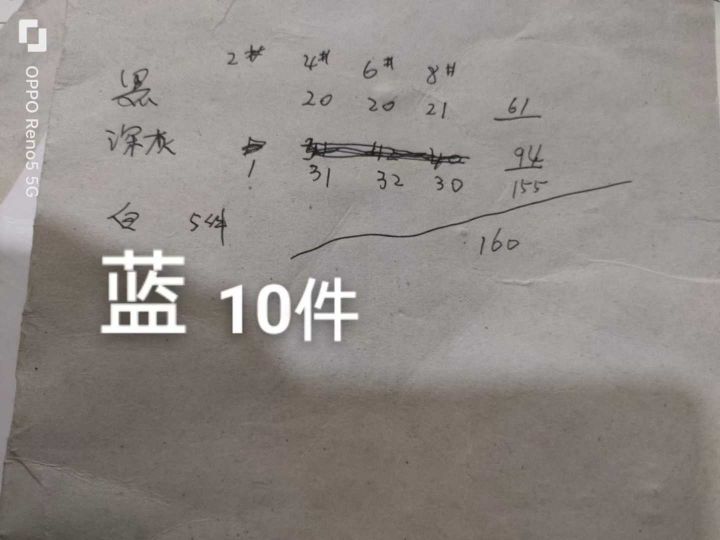 2# 4# 6# 8#
黑 20 20 21 61
深灰 94
1 31 32 30 155
白 5件 160
蓝 10件
OPPO Reno5 5G